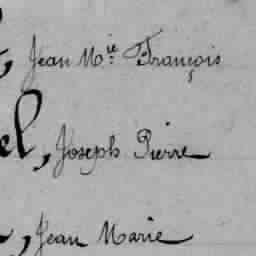 , Jean Mie François
el, Joseph Pierre
, Jean Marie